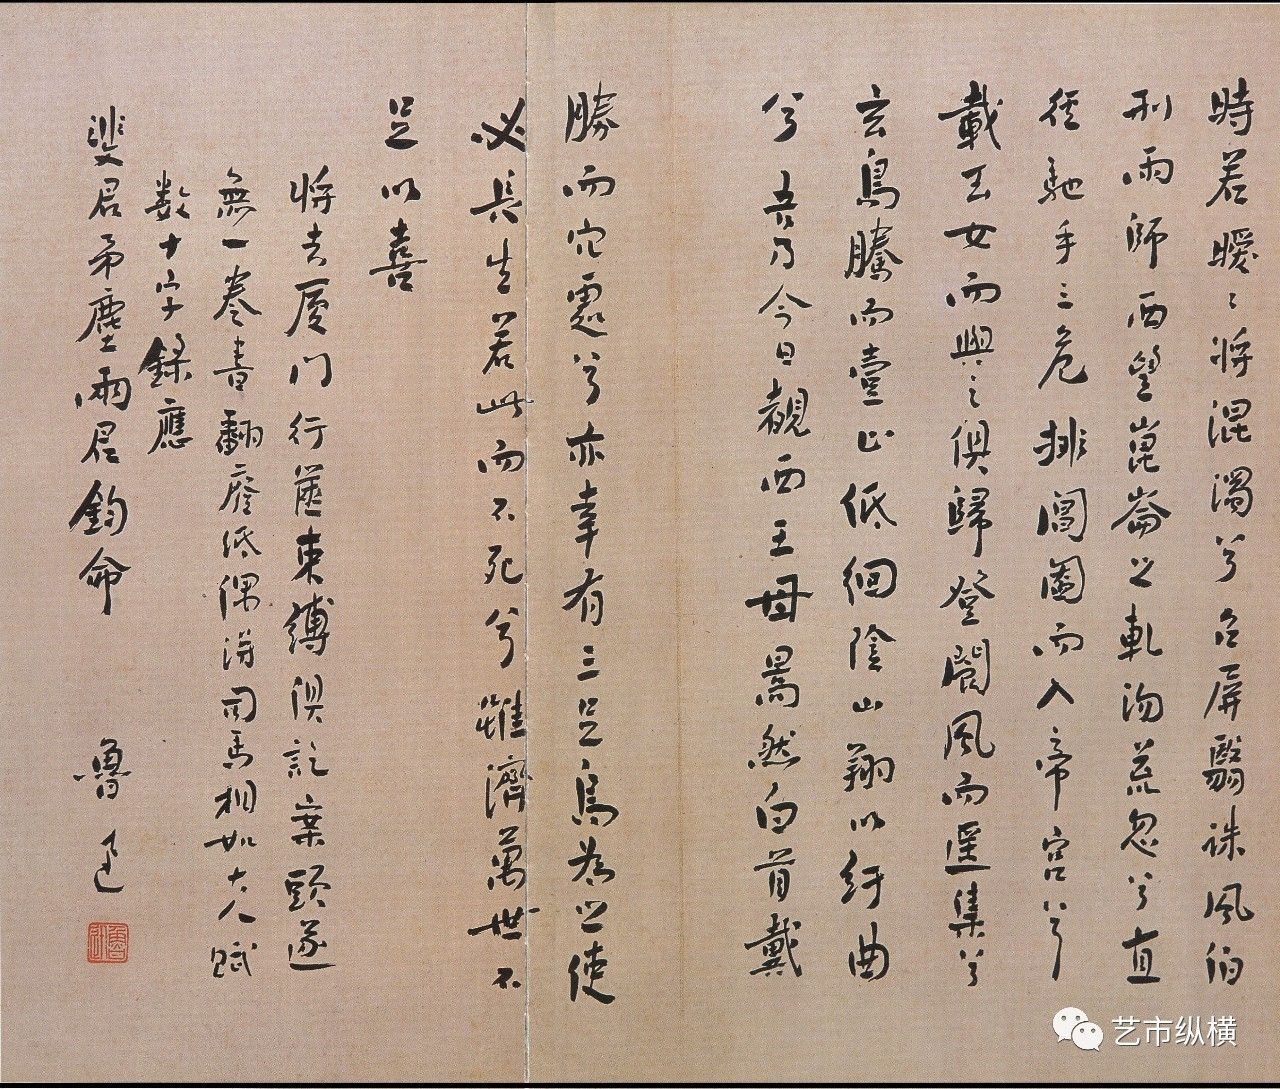 時若曖〻將混濁兮召屏翳誅風伯
刑雨師西望崑崙之軋沕荒忽兮直
徑馳乎三危排閶闔而入帝宮兮
載玉女而與之俱歸登閬風而遥集兮
亢鳥騰而壹止低徊陰山翔以紆曲
兮吾乃今日覩西王母暠然白首戴
勝而穴處兮亦幸有三足烏為之使
必長生若此而不死兮雖濟萬世不
足以喜
將去厦門行篋束縛俱訖案頭遂
無一卷書翻廢紙偶得司馬相如大人賦
數十字錄應
斐君矛塵兩君鈞命
魯迅
艺市纵横